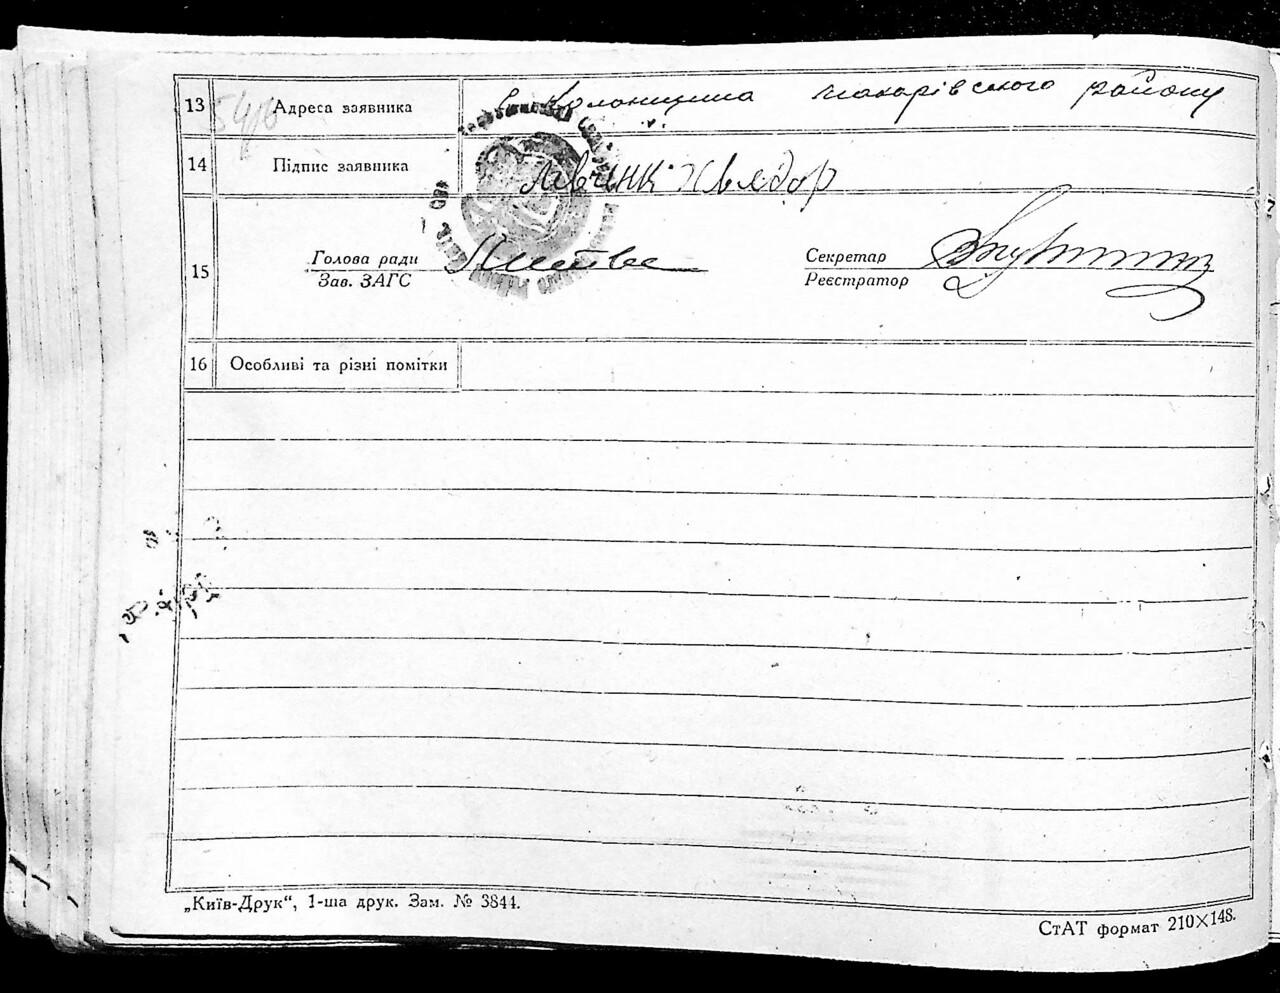 13 Адреса заявника с. Колонщина Макарівського району
14 Підпис заявника Хведор
15 Голова ради
Зав. ЗАГС
Секретар
Реєстратор
16 Особливі та різні помітки
„Київ-Друк“, 1-ша друк. Зам. № 3844.
СтАТ формат 210×148.